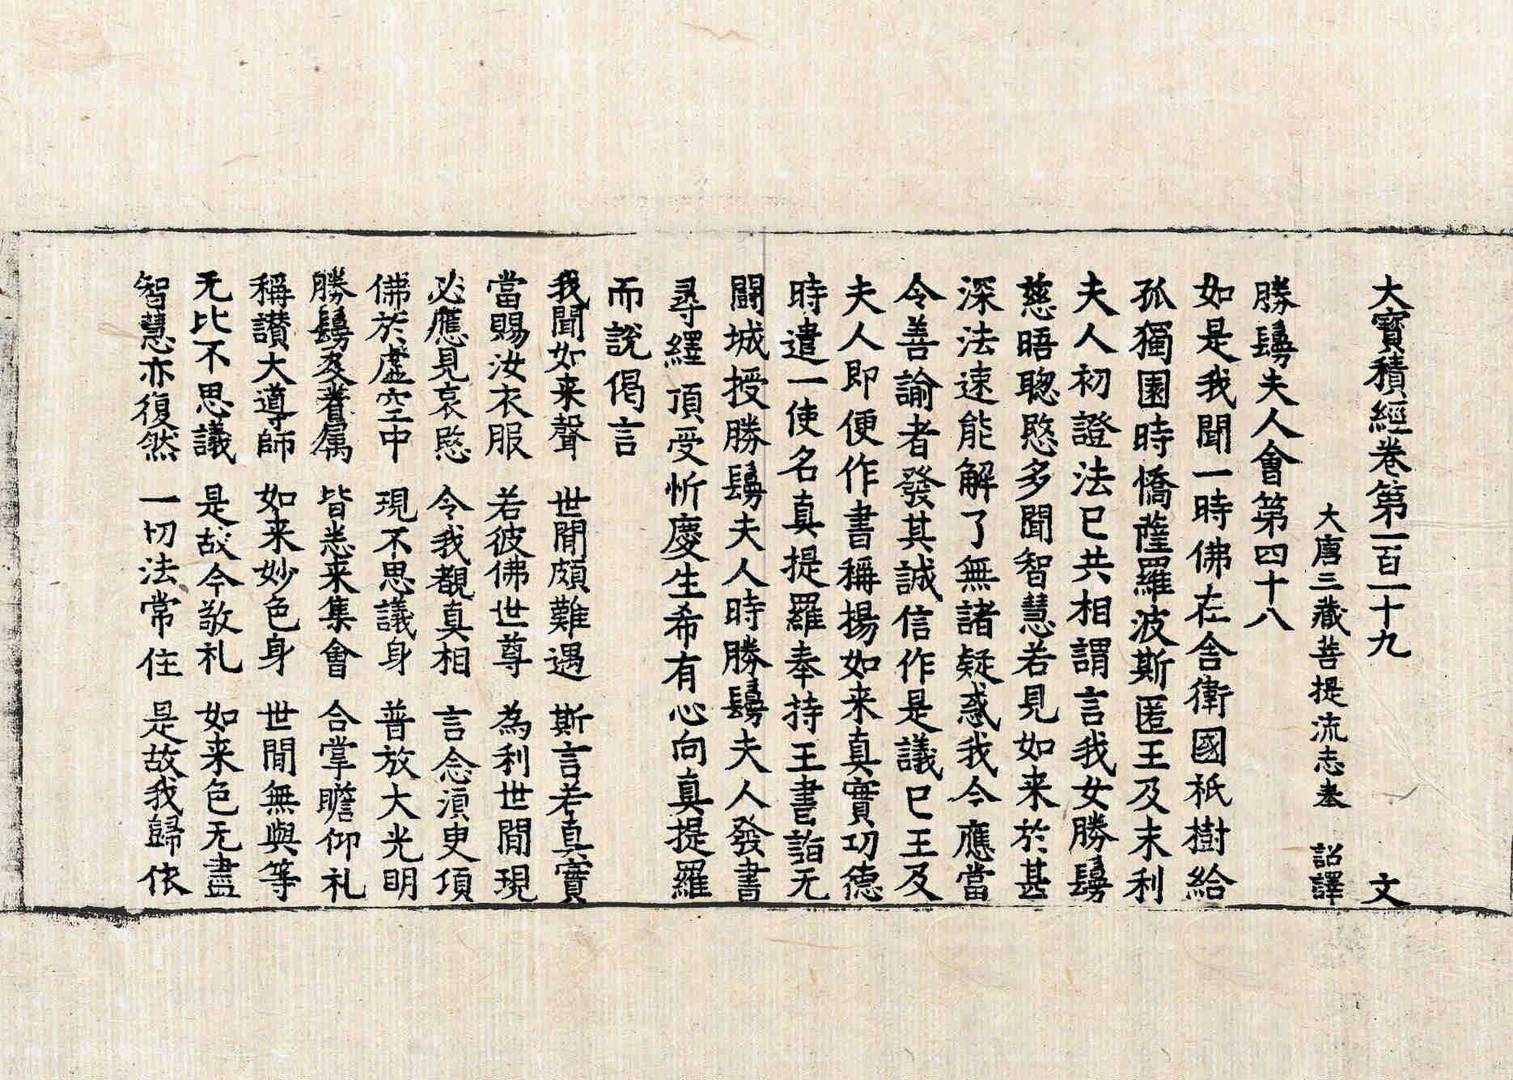 大寶積經卷第一百一十九 文
大唐三藏菩提流志奉 詔譯
勝鬘夫人會第四十八
如是我聞一時佛在舍衛國祇樹給
孤獨園時憍薩羅波斯匿王及末利
夫人初證法已共相謂言我女勝鬘
慈晤聦愍多聞智慧若見如来於甚
深法速能解了無諸疑惑我今應當
令善諭者發其誠信作是議已王及
夫人即便作書稱揚如来真實功德
時遣一使名真提羅奉持王書詣无
鬪城授勝鬘夫人時勝鬘夫人發書
尋繹頂受忻慶生希有心向真提羅
而說偈言
我聞如来聲 世間頗難遇 斯言若真實
當賜汝衣服 若彼佛世尊 為利世間現
必應見哀愍 令我覩真相 言念須臾頃
佛於虛空中 現不思議身 普放大光明
勝鬘及眷属 皆悉来集會 合掌瞻仰礼
稱讃大導師 如来妙色身 世間無與等
无比不思議 是故今敬礼 如来色无盡
智慧亦復然 一切法常住 是故我歸依